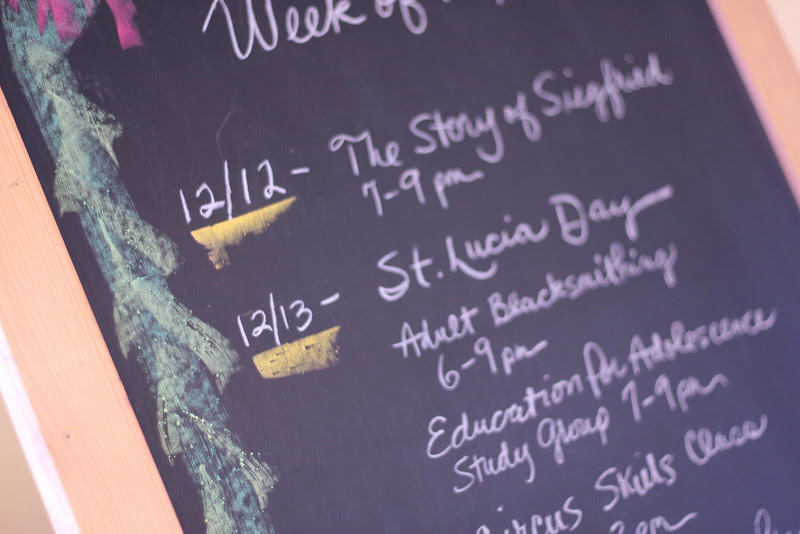 Week of
12/12 - The Story of Siegfried
7-9 pm
12/13 - St. Lucia Day
Adult Blacksmithing
6-9 pm
Education for Adolescence
Study Group 7-9 pm
Circus Skills Class
pm